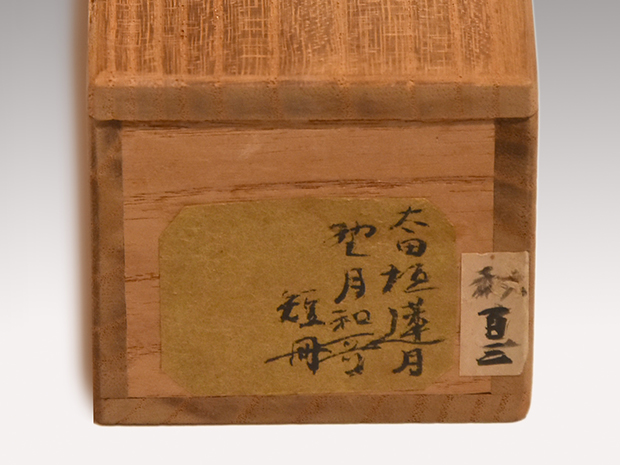 秋
百三
太田垣蓮月
望月和哥
短冊